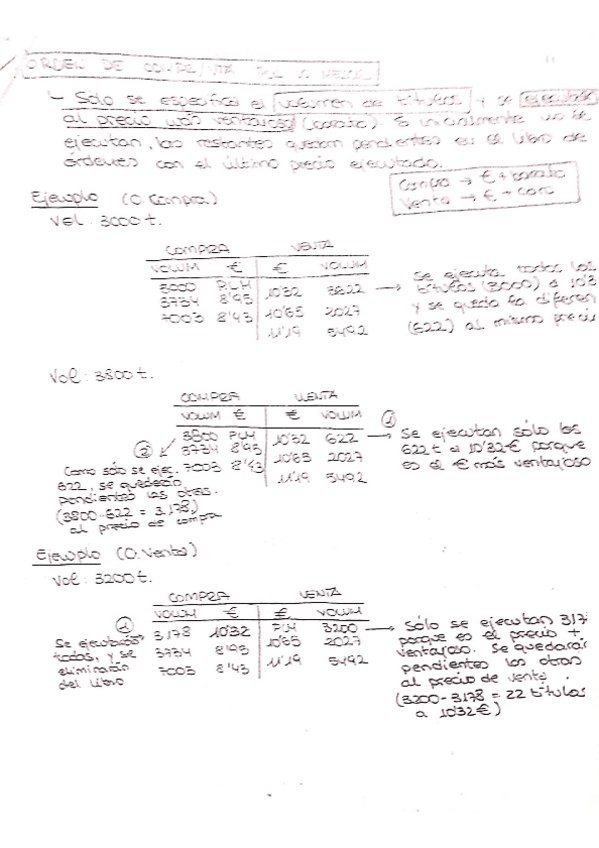 ORDEN DE COMPRA/VTA POR LO MEJOR
↳ Solo se especifica el volumen de títulos y se ejecutan
al precio más ventajoso (barato). Si inicialmente no se
ejecutan, los restantes quedan pendientes en el libro de
órdenes con el último precio ejecutado.
Compra → € + barato
Venta → € + caro
Ejemplo (O. Compra)
Vol: 3000 t.
COMPRA VENTA
VOLUM € € VOLUM
3000 PLM 10'32 3622
3734 8'95 10'65 2027
7003 8'43 11'19 5492
→ Se ejecutan todos los
títulos (3000) a 10'3
y se queda la diferen
(622) al mismo precio
Vol: 3800 t.
COMPRA VENTA
VOLUM € € VOLUM
3800 PLM 10'32 622
3734 8'95 10'65 2027
7003 8'43 11'19 5492
① → Se ejecutan sólo los
622 t a 10'32€ porque
es el € más ventajoso
② Como sólo se ejec.
622, se quedarán
pendientes las otras.
(3800-622 = 3.178,)
al precio de compra
Ejemplo (O. Venta)
Vol: 3200 t.
COMPRA VENTA
VOLUM € € VOLUM
3178 10'32 PLM 3200
3734 8'95 10'65 2027
7003 8'43 11'19 5492
Se ejecutarán
todas, y se
eliminarán
del libro
→ Sólo se ejecutan 317
porque es el precio +
ventajoso. Se quedarán
pendientes las otras
al precio de venta.
(3200-3178 = 22 títulos
a 10'32€)